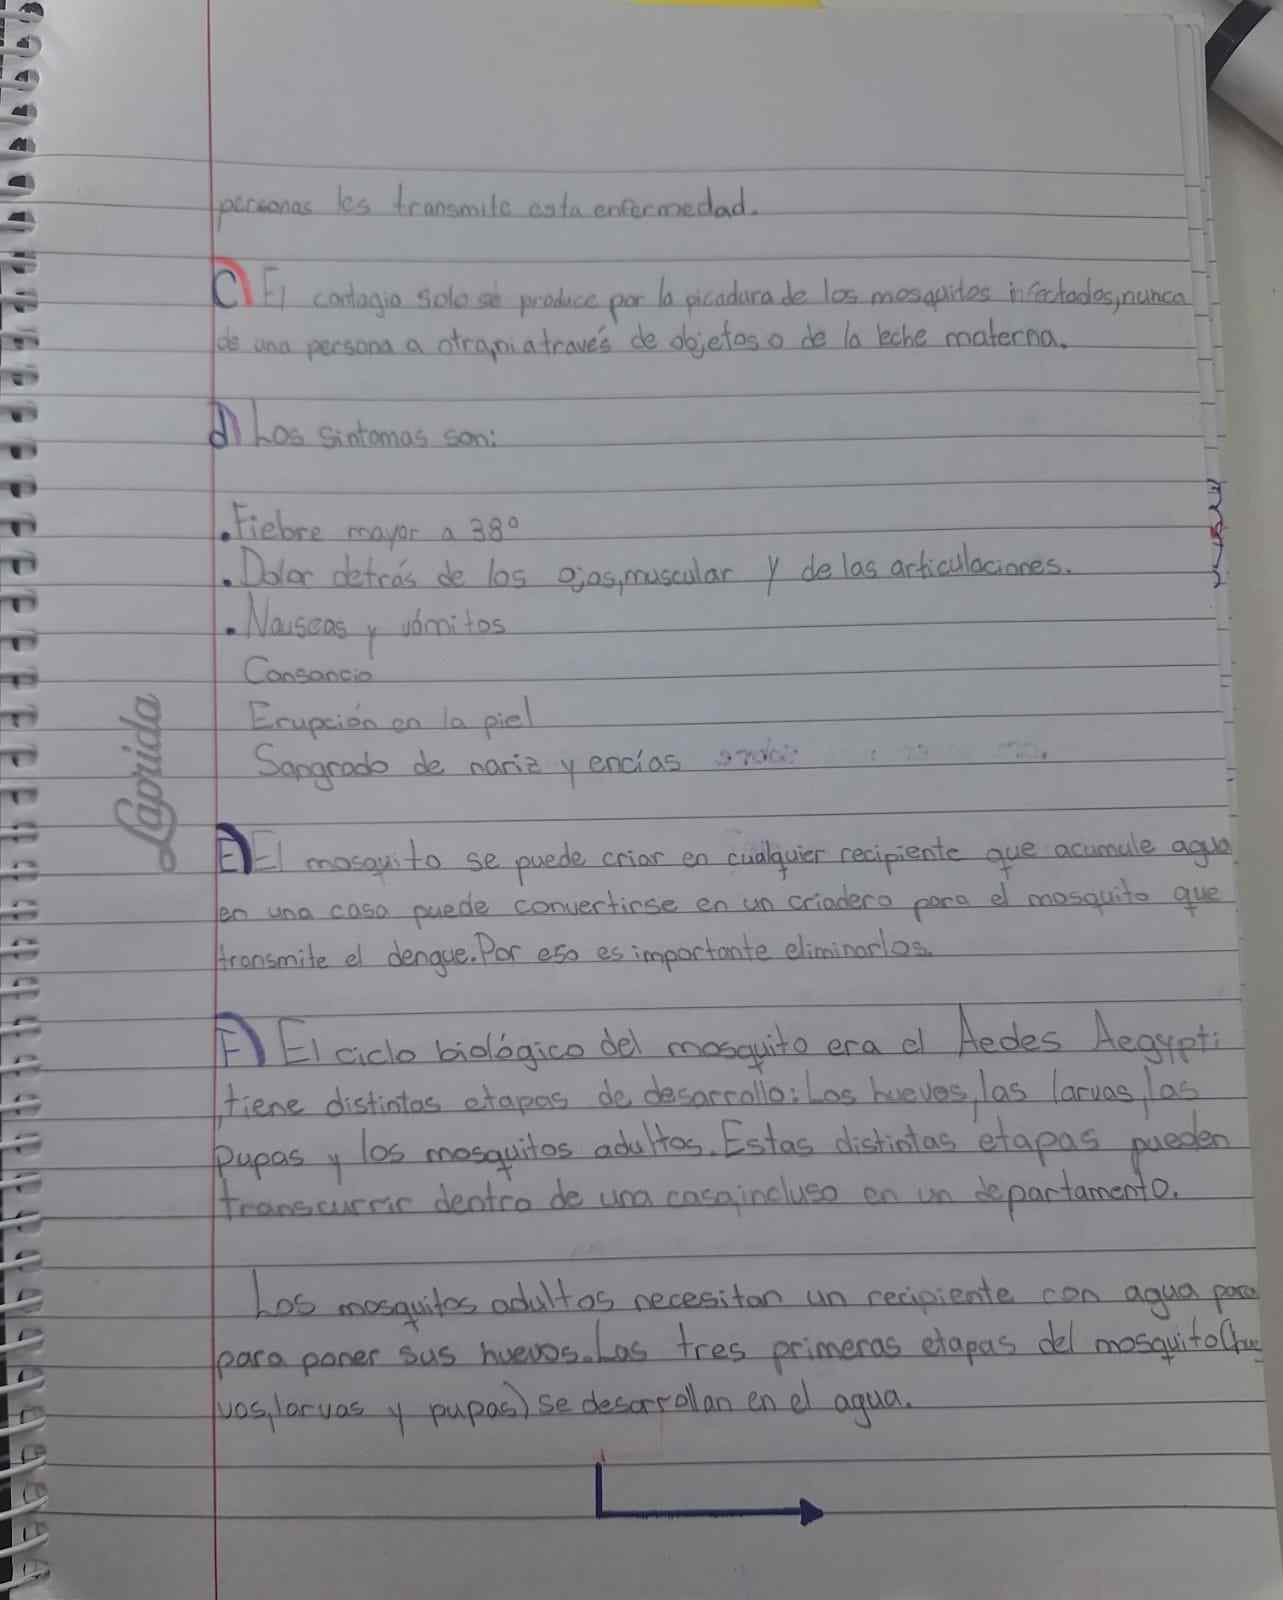 personas les transmite esta enfermedad.
C) El contagio solo se produce por la picadura de los mosquitos infectados, nunca
de una persona a otra, ni a través de objetos o de la leche materna.
d) Los sintomas son:
. Fiebre mayor a 38º
. Dolor detrás de los ojos, muscular y de las articulaciones.
. Nauseas y vómitos
Cansancio
Erupción en la piel
Sangrado de nariz y encías
E) El mosquito se puede criar en cualquier recipiente que acumule agua
en una casa puede convertirse en un criadero para el mosquito que
transmite el dengue. Por eso es importante eliminarlos.
F) El ciclo biológico del mosquito era el Aedes Aegypti
, tiene distintas etapas de desarrollo: Los huevos, las larvas, las
pupas y los mosquitos adultos. Estas distintas etapas pueden
transcurrir dentro de una casa, incluso en un departamento.
Los mosquitos adultos necesitan un recipiente con agua para
para poner sus huevos. Las tres primeras etapas del mosquito (hue
vos, larvas y pupas) se desarrollan en el agua.
Laprida